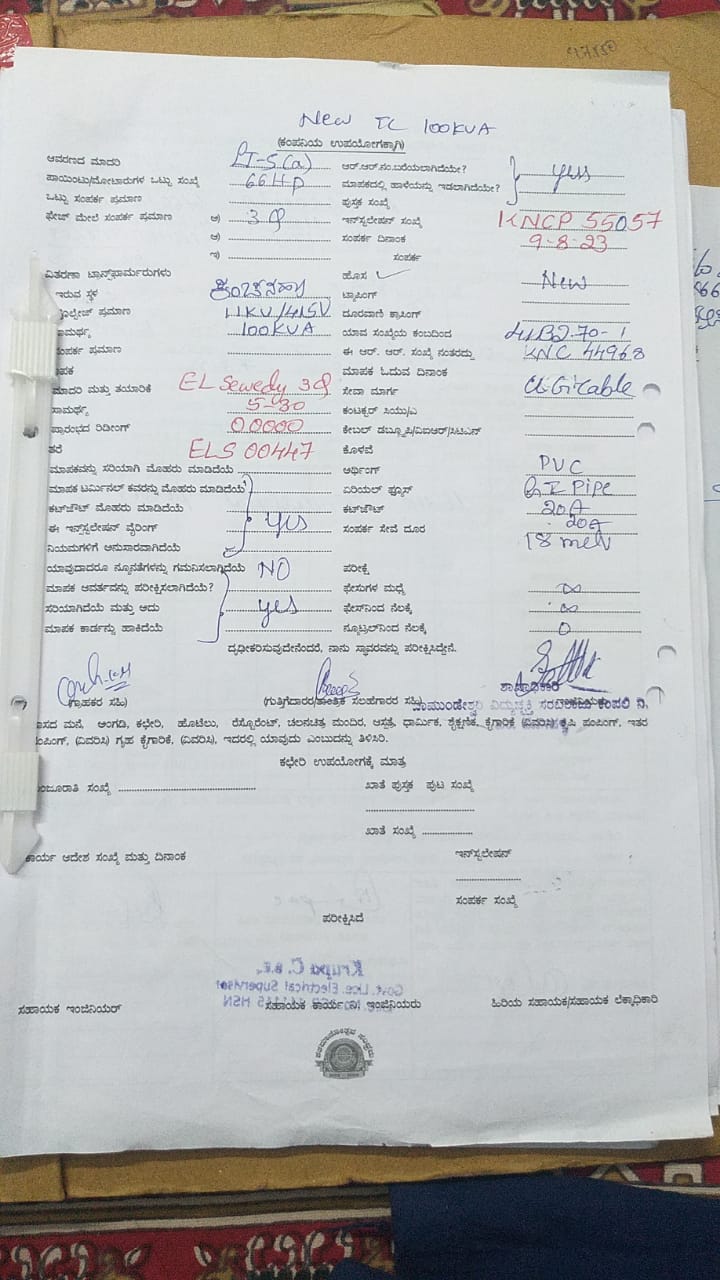 New TC 100KVA
(ಕಂಪನಿಯ ಉಪಯೋಗಕ್ಕಾಗಿ)
ಆವರಣದ ಮಾದರಿ LT-5(a) ಆರ್.ಆರ್.ನಂ.ಬರೆಯಲಾಗಿದೆಯೇ? yes
ಪಾಯಿಂಟು/ಮೋಟಾರುಗಳ ಒಟ್ಟು ಸಂಖ್ಯೆ 66HP ಮಾಪಕದಲ್ಲಿ ಹಾಳೆಯನ್ನು ಇಡಲಾಗಿದೆಯೇ?
ಒಟ್ಟು ಸಂಪರ್ಕ ಪ್ರಮಾಣ ಪುಸ್ತಕ ಸಂಖ್ಯೆ
ಫೇಜ್ ಮೇಲೆ ಸಂಪರ್ಕ ಪ್ರಮಾಣ ಅ) 3 Φ ಇನ್‌ಸ್ಟಲೇಷನ್ ಸಂಖ್ಯೆ KNCP 55057
ಆ) ಸಂಪರ್ಕ ದಿನಾಂಕ 9-8-23
ಇ) ಸಂಪರ್ಕ
ವಿತರಣಾ ಟ್ರಾನ್ಸ್‌ಫಾರ್ಮರುಗಳು ಹೊಸ ✓ New
ಇರುವ ಸ್ಥಳ ಟ್ಯಾಪಿಂಗ್
ವೋಲ್ಟೇಜ್ ಪ್ರಮಾಣ 11KV/415V ದೂರವಾಣಿ ಕ್ರಾಸಿಂಗ್
ಸಾಮರ್ಥ್ಯ 100KVA ಯಾವ ಸಂಖ್ಯೆಯ ಕಂಬದಿಂದ
ಸಂಪರ್ಕ ಪ್ರಮಾಣ ಈ ಆರ್. ಆರ್. ಸಂಖ್ಯೆ ನಂತರದ್ದು KNC 44968
ಮಾಪಕ ಮಾಪಕ ಓದುವ ದಿನಾಂಕ
ಮಾದರಿ ಮತ್ತು ತಯಾರಿಕೆ EL Sewedy 3Φ ಸೇವಾ ಮಾರ್ಗ
ಸಾಮರ್ಥ್ಯ 5-30 ಕಂಟಕ್ಟರ್ ಸಿಯು/ಎ
ಪ್ರಾರಂಭದ ರಿಡಿಂಗ್ 0.0000 ಕೇಬಲ್ ಡಬ್ಲ್ಯೂಪಿ/ವಿಐಆರ್/ಸಿಟಿಎಸ್
ತರೆ ELS 00447 ಕೊಳವೆ
ಮಾಪಕವನ್ನು ಸರಿಯಾಗಿ ಮೊಹರು ಮಾಡಿದೆಯೆ ಅರ್ಥಿಂಗ್ PVC
ಮಾಪಕ ಟರ್ಮಿನಲ್ ಕವರನ್ನು ಮೊಹರು ಮಾಡಿದೆಯೆ ಏರಿಯಲ್ ಫ್ಯೂಸ್ G I Pipe
ಕಟ್‌ಔಟ್ ಮೊಹರು ಮಾಡಿದೆಯೆ ಕಟ್‌ಔಟ್ 20A
ಈ ಇನ್‌ಸ್ಟಲೇಷನ್ ವೈರಿಂಗ್ yes ಸಂಪರ್ಕ ಸೇವೆ ದೂರ 20A
ನಿಯಮಗಳಿಗೆ ಅನುಸಾರವಾಗಿದೆಯೆ 18
ಯಾವುದಾದರೂ ನ್ಯೂನತೆಗಳನ್ನು ಗಮನಿಸಲಾಗಿದೆಯೇ NO ಪರೀಕ್ಷೆ
ಮಾಪಕ ಆವರ್ತವನ್ನು ಪರೀಕ್ಷಿಸಲಾಗಿದೆಯೆ? ಫೇಸುಗಳ ಮಧ್ಯೆ ∞
ಸರಿಯಾಗಿದೆಯೆ ಮತ್ತು ಅದು yes ಫೇಸ್‌ನಿಂದ ನೆಲಕ್ಕೆ ∞
ಮಾಪಕ ಕಾರ್ಡನ್ನು ಹಾಕಿದೆಯೆ ನ್ಯೂಟ್ರಲ್‌ನಿಂದ ನೆಲಕ್ಕೆ 0
ದೃಢೀಕರಿಸುವುದೇನೆಂದರೆ, ನಾನು ಸ್ಥಾವರವನ್ನು ಪರೀಕ್ಷಿಸಿದ್ದೇನೆ.
(ಗ್ರಾಹಕರ ಸಹಿ) (ಗುತ್ತಿಗೆದಾರರ/ತಾಂತ್ರಿಕ ಸಲಹೆಗಾರರ ಸಹಿ) ಶಾಖಾಧಿಕಾರಿ
ಚಾಮುಂಡೇಶ್ವರಿ ವಿದ್ಯುಚ್ಛಕ್ತಿ ಸರಬರಾಜು ಕಂಪನಿ ನಿ.
ವಾಸದ ಮನೆ, ಅಂಗಡಿ, ಕಛೇರಿ, ಹೋಟೆಲು, ರೆಸ್ಟೋರೆಂಟ್, ಚಲನಚಿತ್ರ ಮಂದಿರ, ಆಸ್ಪತ್ರೆ, ಧಾರ್ಮಿಕ, ಶೈಕ್ಷಣಿಕ, ಕೈಗಾರಿಕೆ (ವಿವರಿಸಿ) ಕೃಷಿ ಪಂಪಿಂಗ್, ಇತರ
ಪಂಪಿಂಗ್, (ವಿವರಿಸಿ) ಗೃಹ ಕೈಗಾರಿಕೆ, (ವಿವರಿಸಿ), ಇದರಲ್ಲಿ ಯಾವುದು ಎಂಬುದನ್ನು ತಿಳಿಸಿರಿ.
ಕಛೇರಿ ಉಪಯೋಗಕ್ಕೆ ಮಾತ್ರ
ಮಂಜೂರಾತಿ ಸಂಖ್ಯೆ ಖಾತೆ ಪುಸ್ತಕ ಪುಟ ಸಂಖ್ಯೆ
ಖಾತೆ ಸಂಖ್ಯೆ
ಕಾರ್ಯ ಆದೇಶ ಸಂಖ್ಯೆ ಮತ್ತು ದಿನಾಂಕ ಇನ್‌ಸ್ಟಲೇಷನ್
ಸಂಪರ್ಕ ಸಂಖ್ಯೆ
ಪರೀಕ್ಷಿಸಿದೆ
Krupa C. B.E.,
Govt. Lice. Electrical Supervisor
HSN
ಸಹಾಯಕ ಇಂಜಿನಿಯರ್ ಸಹಾಯಕ ಕಾರ್ಯ ನಿ ಇಂಜಿನಿಯರು ಹಿರಿಯ ಸಹಾಯಕ/ಸಹಾಯಕ ಲೆಕ್ಕಾಧಿಕಾರಿ